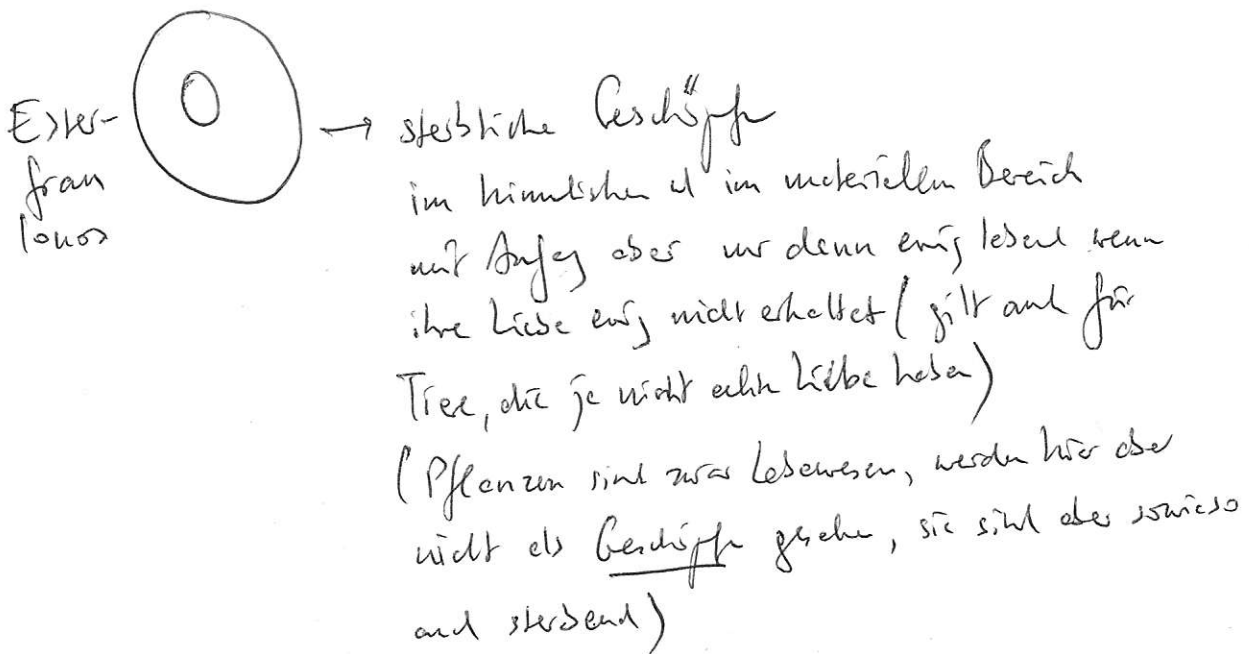 Exter-
fran
lonos
→ sterbliche Geschöpfe
im himmlischen u im materiellen Bereich
mit Anfang aber nur dann ewig lebend wenn
ihre Liebe ewig nicht erkaltet (gilt auch für
Tiere, die je nicht echte Liebe haben)
(Pflanzen sind zwar Lebewesen, werden hier aber
nicht als Geschöpfe gesehen, sie sind aber sowieso
auch sterbend)